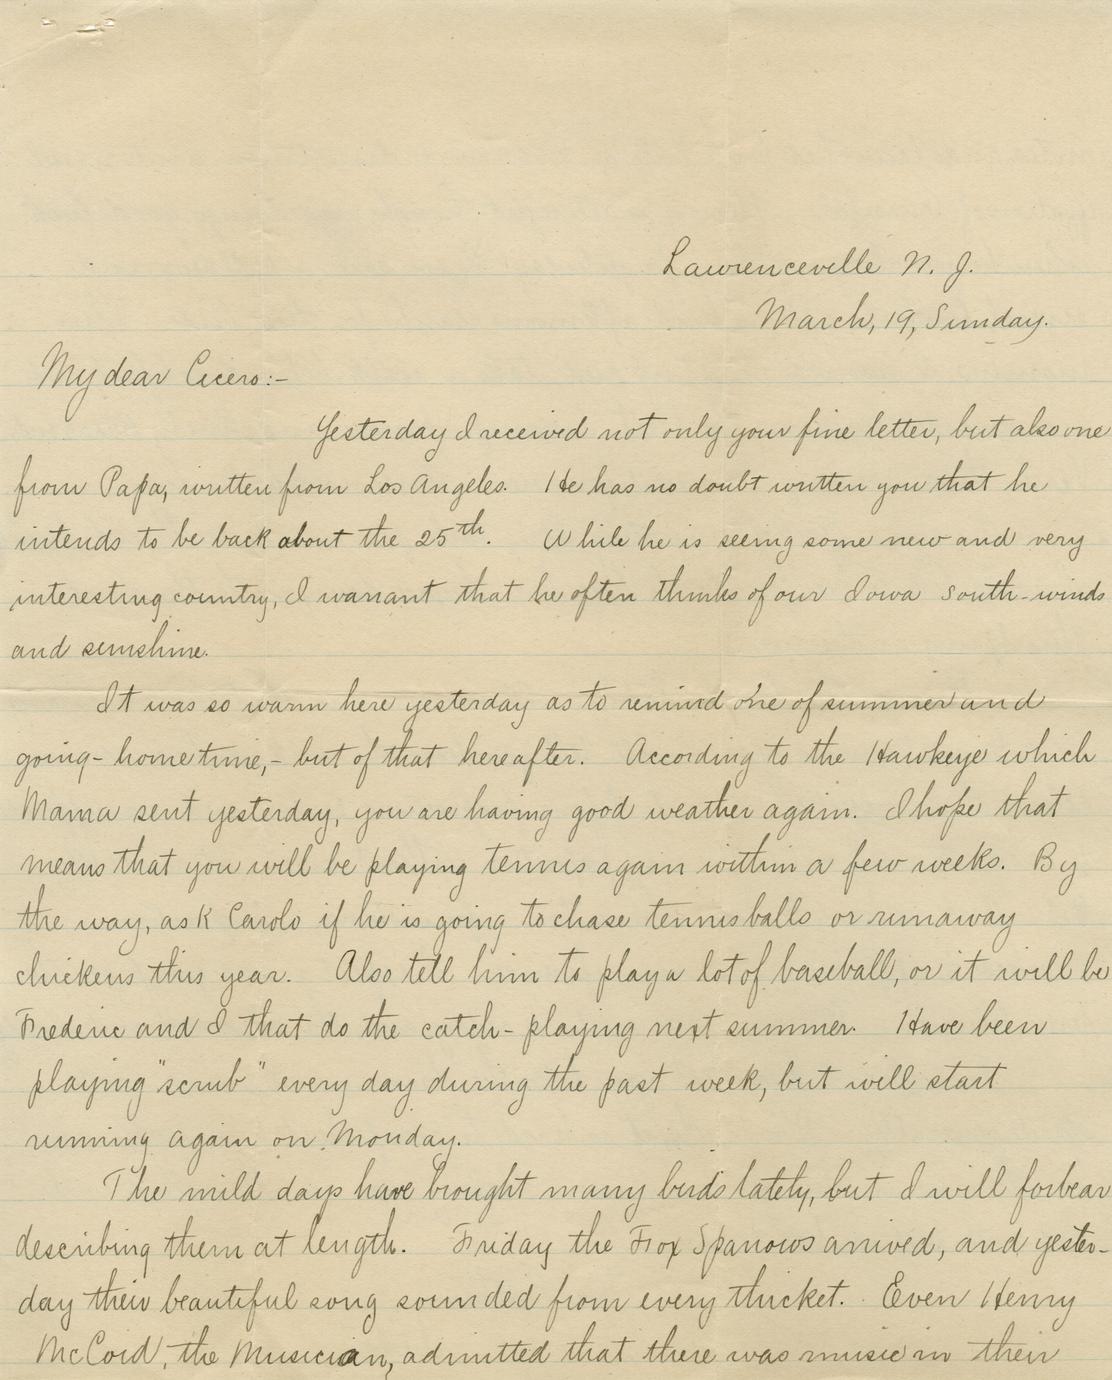 Lawrenceville N. J.
March, 19, Sunday.
My dear Cicero:-
Yesterday I received not only your fine letter, but also one
from Papa, written from Los Angeles. He has no doubt written you that he
intends to be back about the 25th. While he is seeing some new and very
interesting country, I warrant that he often thinks of our Iowa south-winds
and sunshine.
It was so warm here yesterday as to remind one of summer and
going-home time,- but of that hereafter. According to the Hawkeye which
Mama sent yesterday, you are having good weather again. I hope that
means that you will be playing tennis again within a few weeks. By
the way, ask Carolo if he is going to chase tennis balls or runaway
chickens this year. Also tell him to play a lot of baseball, or it will be
Frederic and I that do the catch-playing next summer. Have been
playing "scrub" every day during the past week, but will start
running again on Monday.
The mild days have brought many birds lately, but I will forbear
describing them at length. Friday the Fox Sparrows arrived, and yester-
day their beautiful song sounded from every thicket. Even Henry
McCoid, the Musician, admitted that there was music in their